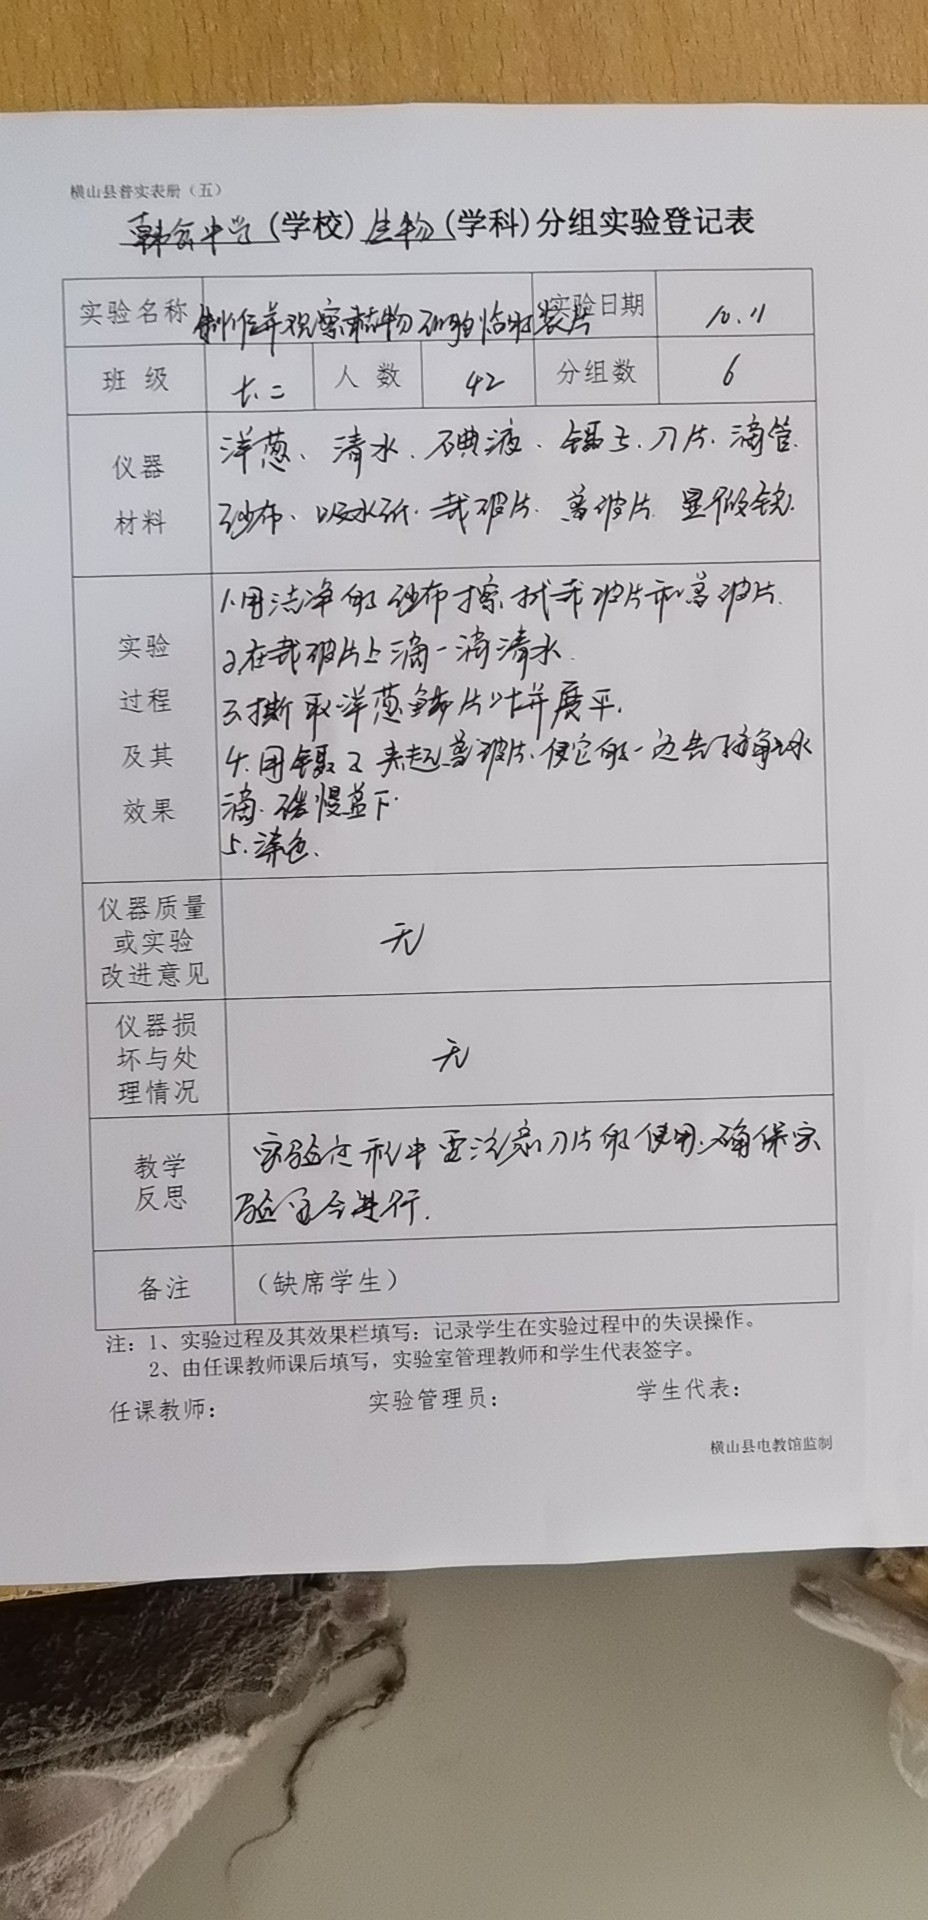 横山县普实表册（五）
韩岔中学（学校）生物（学科）分组实验登记表
实验名称 制作并观察植物细胞临时装片 实验日期 10.11
班 级 七.二 人 数 42 分组数 6
仪器
材料
洋葱、清水、碘液、镊子、刀片、滴管、
纱布、吸水纸、载玻片、盖玻片、显微镜.
实验
过程
及其
效果
1.用洁净的纱布擦拭载玻片和盖玻片.
2.在载玻片上滴一滴清水.
3.撕取洋葱鳞片 并展平.
4.用镊子夹起盖玻片、使它的一边先接触水
滴、缓慢盖下.
5.染色.
仪器质量
或实验
改进意见
无
仪器损
坏与处
理情况
无
教学
反思
实验过程中要注意刀片的使用、确保实
验安全进行.
备注 （缺席学生）
注：1、实验过程及其效果栏填写：记录学生在实验过程中的失误操作。
2、由任课教师课后填写，实验室管理教师和学生代表签字。
任课教师： 实验管理员： 学生代表：
横山县电教馆监制